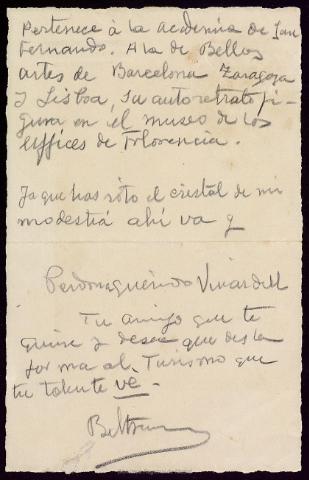 Pertenece á la academia de San
Fernando. A la de Bellas
artes de Barcelona Zaragoza
y Lisboa, su autoretrato fi-
gura en el museo de los
Uffices de Florencia.
Ya que has roto el cristal de mi
modestia ahi va y
Perdona querido Vivardell
Tu amigo que te
quiere y desea que des la
forma al. Turismo que
tu talento ve.
Beltran